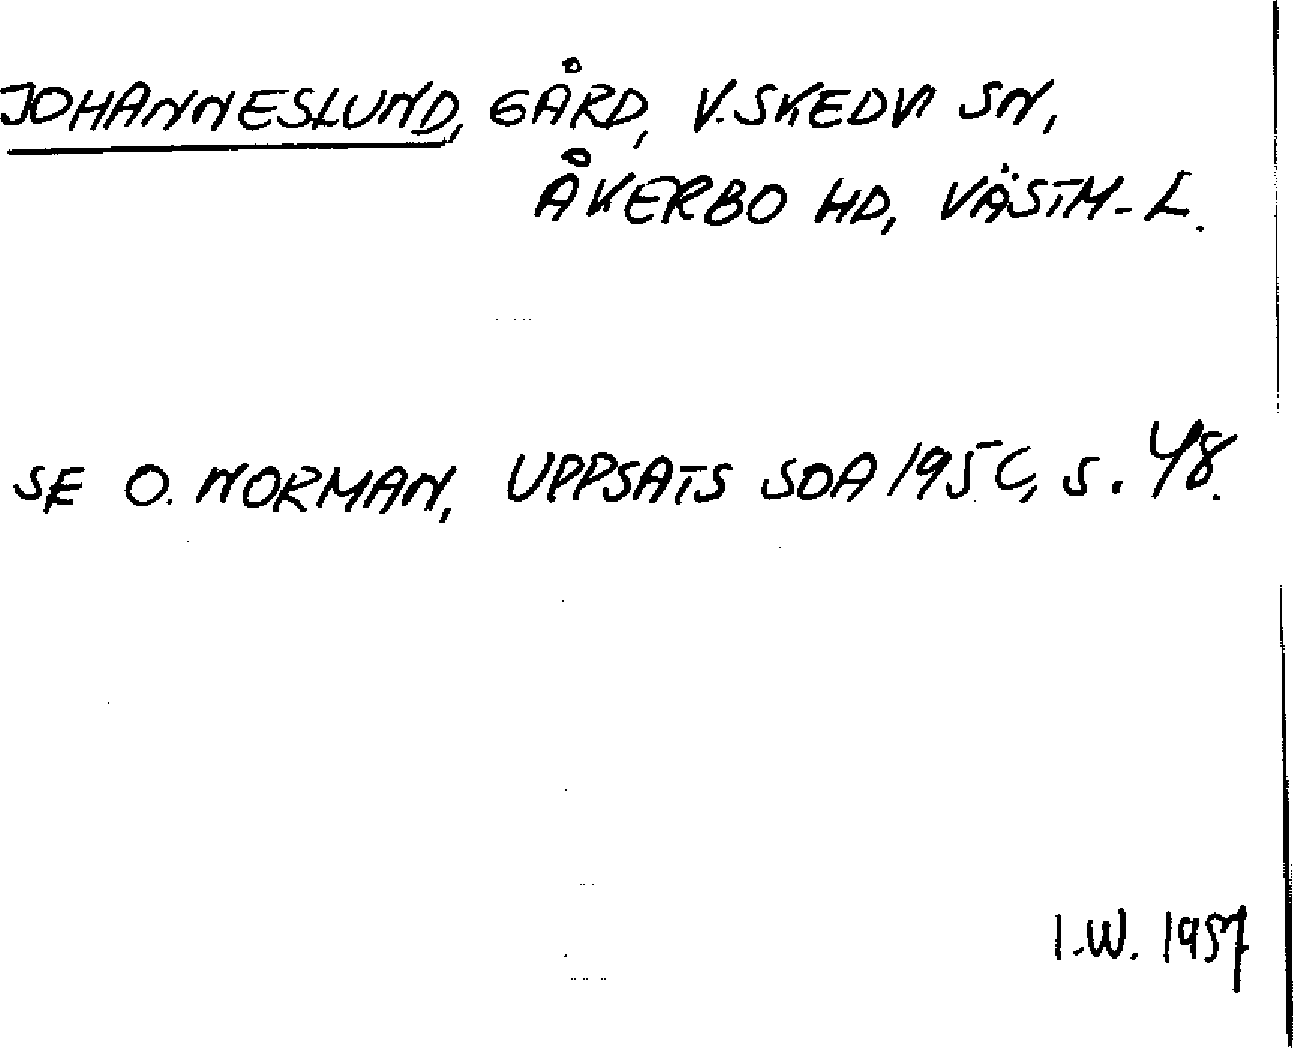 JOHANNESLUND, GÅRD, V. SKEDVI SN,
ÅKERBO HD, VÄSTM-L.
SE O. NORMAN, UPPSATS SOA 195C, S. 48.
I.W. 1957